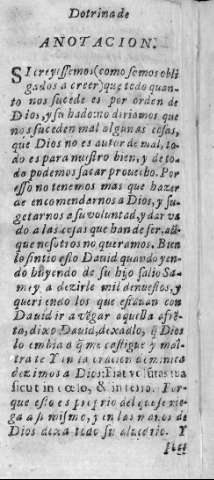 Dotrina de
ANOTACION.
SI creyessemos (como somos obli
gados a creer) que todo quan
to nos sucede es por orden de
Dios, y su hado: no diriamos que
nos suceden mal algunas cosas,
que Dios no es autor de mal, to
do es para nuestro bien, y de to
do podemos sacar prouecho. Por
esso no tenemos mas que hazer
de encomendarnos a Dios, y su-
getarnos a su voluntad, y dar va
do a las cosas que han de ser, aũ
que nosotros no queramos. Bien
lo sintio esto Dauid quando yen-
do huyendo de su hijo salio Sa-
mey a dezirle mil denuestos, y
queriendo los que estauan con
Dauid ir a vẽgar aquella afrẽ
ta, dixo Dauid, dexadlo, q̃ Dios
lo embia a q̃ me castigue y mal
trate Y en la oracion dominica
dezimos a Dios: Fiat volũtas tua
sicut in cœlo, & in terra. Por-
que esso es proprio del que se nie
ga a si mismo, y en las manos de
Dios dexa todo su aluedrio. Y